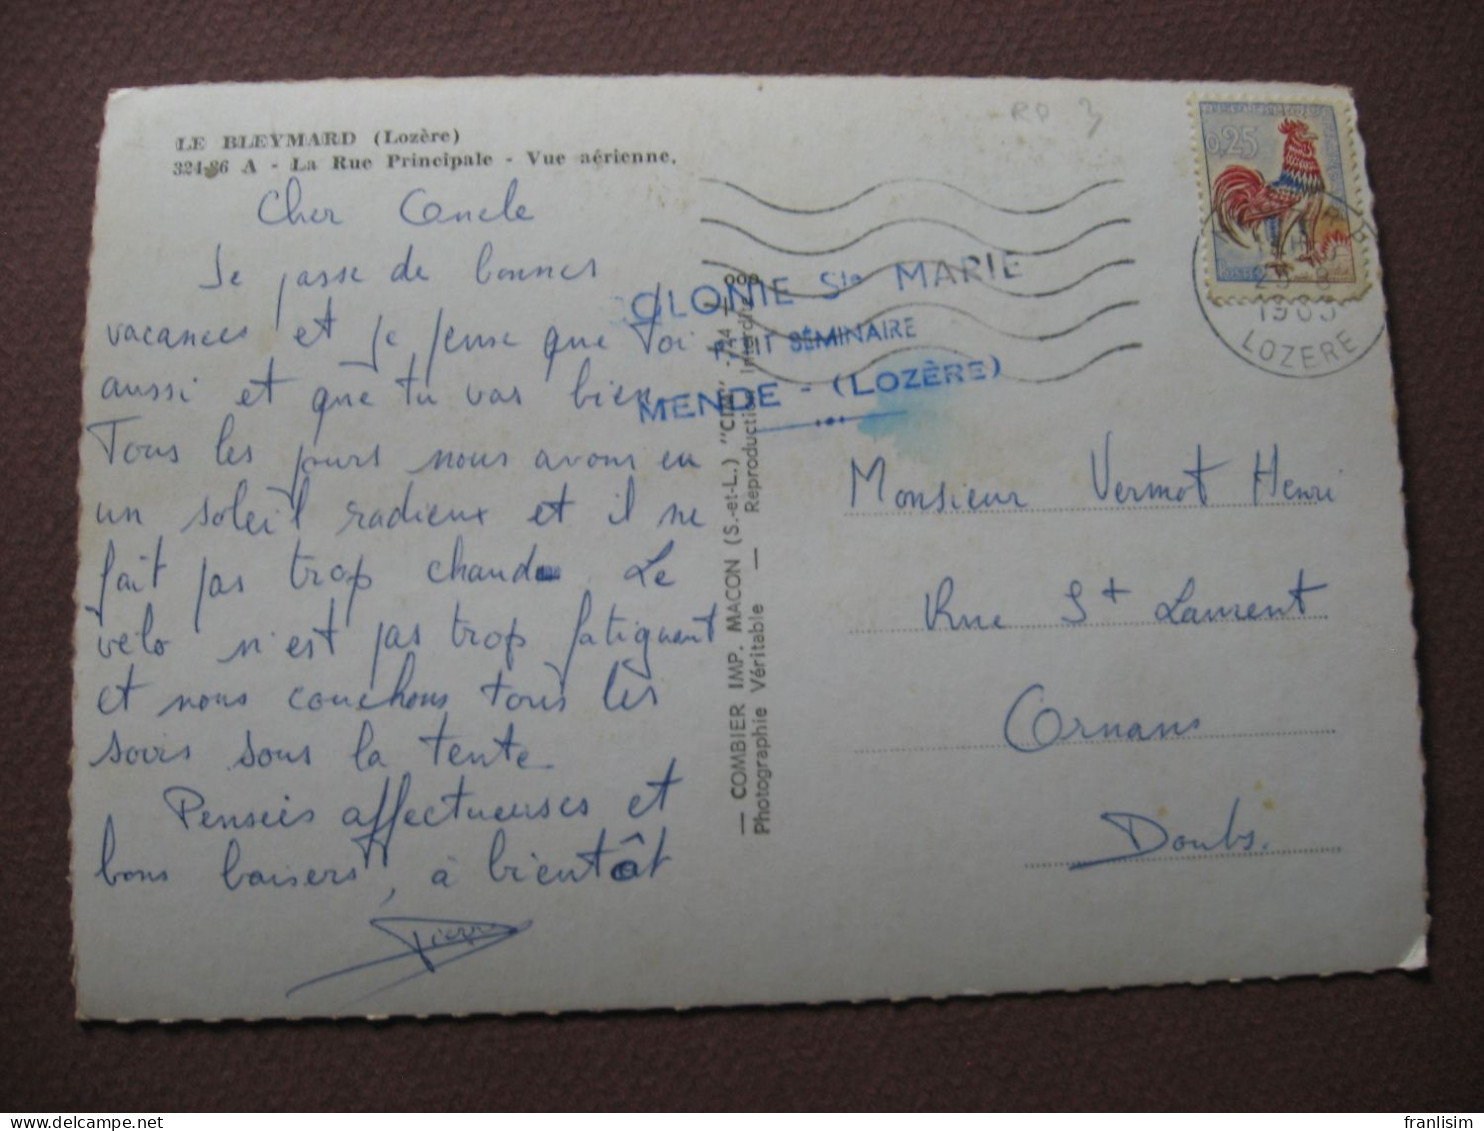 LE BLEYMARD (Lozère)
324-86 A - La Rue Principale - Vue aérienne.
Cher Oncle
Je passe de bonnes
vacances et je pense que toi
aussi et que tu vas bien.
Tous les jours nous avons eu
un soleil radieux et il ne
fait pas trop chaud. Le
vélo n'est pas trop fatiguant
et nous couchons tous les
soirs sous la tente
Pensées affectueuses et
bons baisers, à bientôt
Pierre
— COMBIER IMP. MACON (S.-et-L.) "CIM"
Photographie Véritable — Reproduction Interdite
COLONIE Ste MARIE
SÉMINAIRE
MENDE - (LOZÈRE)
RD 3
0,25
LOZERE
Monsieur Vermot Henri
Rue St Laurent
Ornans
Doubs.
franlisim
www.delcampe.net